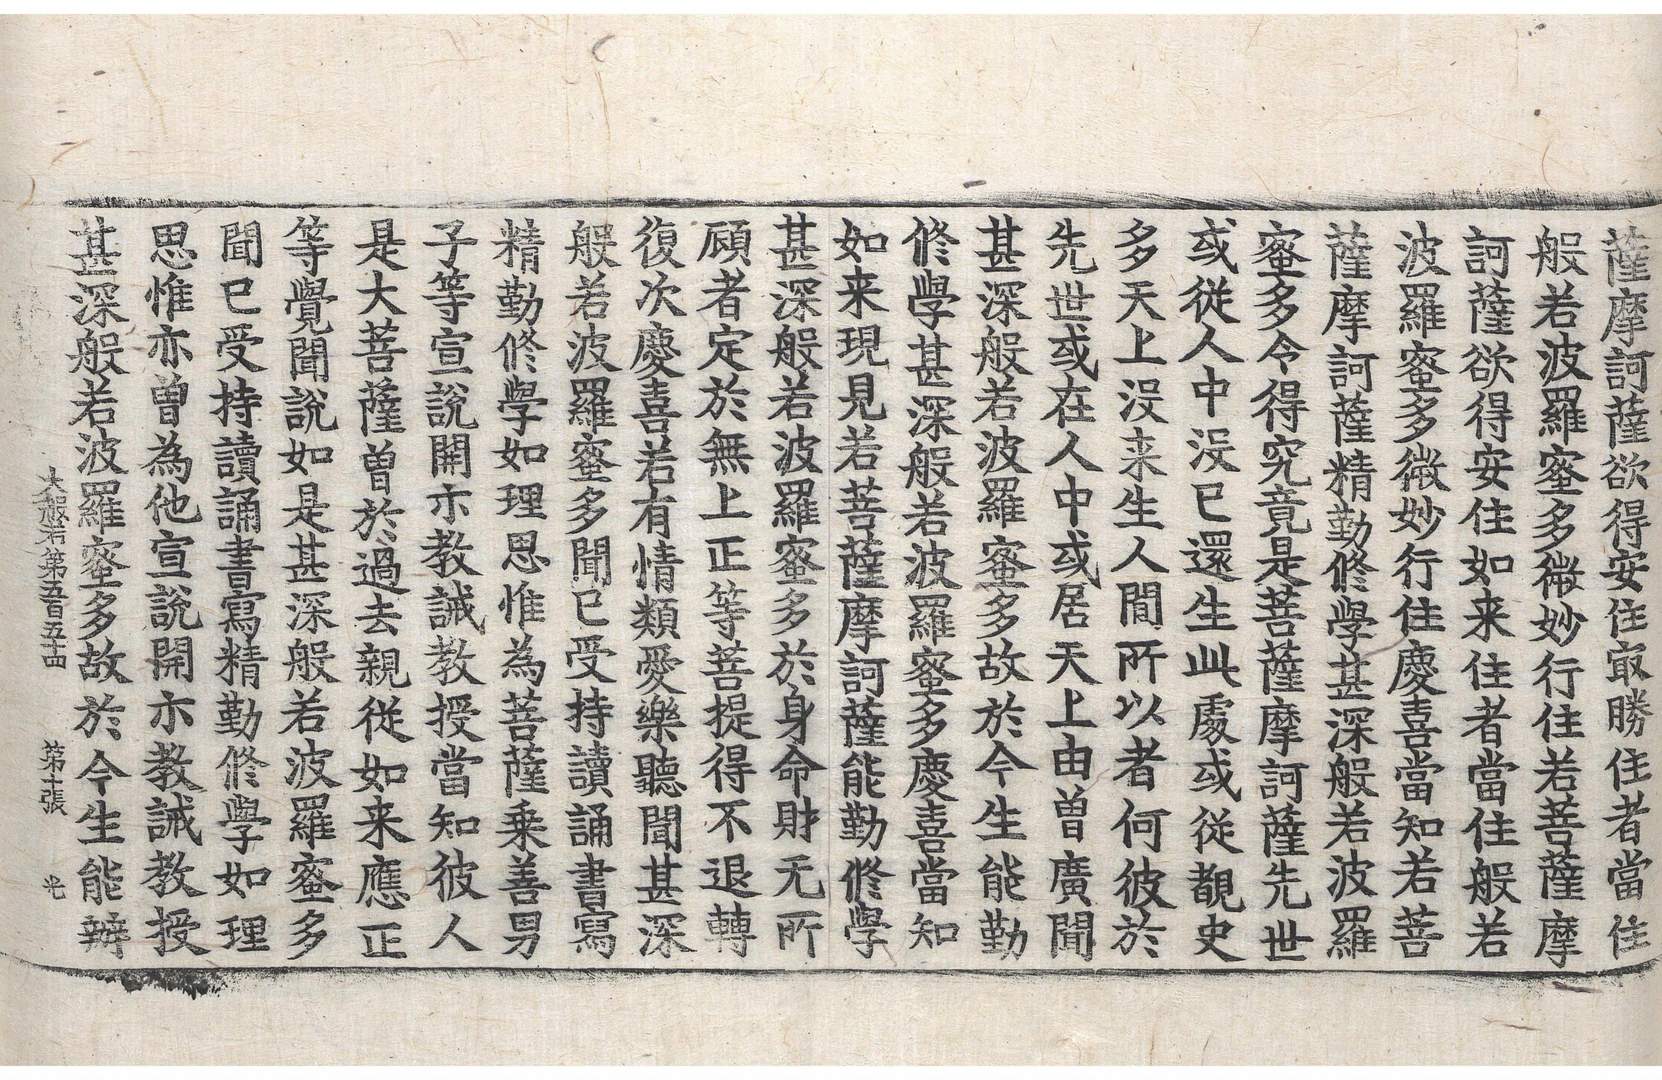 薩摩訶薩欲得安住㝡勝住者當住
般若波羅蜜多微妙行住若菩薩摩
訶薩欲得安住如来住者當住般若
波羅蜜多微妙行住慶喜當知若菩
薩摩訶薩精勤修學甚深般若波羅
蜜多令得究竟是菩薩摩訶薩先世
或從人中没已還生此處或從覩史
多天上没来生人間所以者何彼於
先世或在人中或居天上由曾廣聞
甚深般若波羅蜜多故於今生能勤
修學甚深般若波羅蜜多慶喜當知
如来現見若菩薩摩訶薩能勤修學
甚深般若波羅蜜多於身命財无所
顧者定於無上正等菩提得不退轉
復次慶喜若有情類愛樂聽聞甚深
般若波羅蜜多聞已受持讀誦書寫
精勤修學如理思惟為菩薩乗善男
子等宣說開示教誡教授當知彼人
是大菩薩曾於過去親從如来應正
等覺聞說如是甚深般若波羅蜜多
聞已受持讀誦書寫精勤修學如理
思惟亦曾為他宣說開示教誡教授
甚深般若波羅蜜多故於今生能辦
大般若第五百五十四 第十張 光